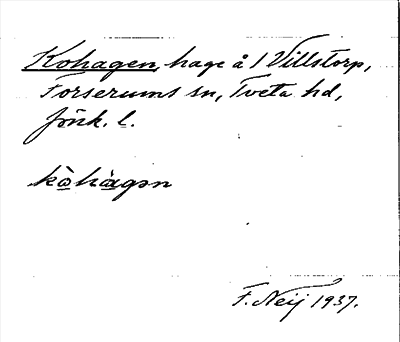 Kohagen, hage å 1 Villstorp,
Forserums sn, Tveta hd,
Jönk. l.
kòhàgən
F. Neij 1937.